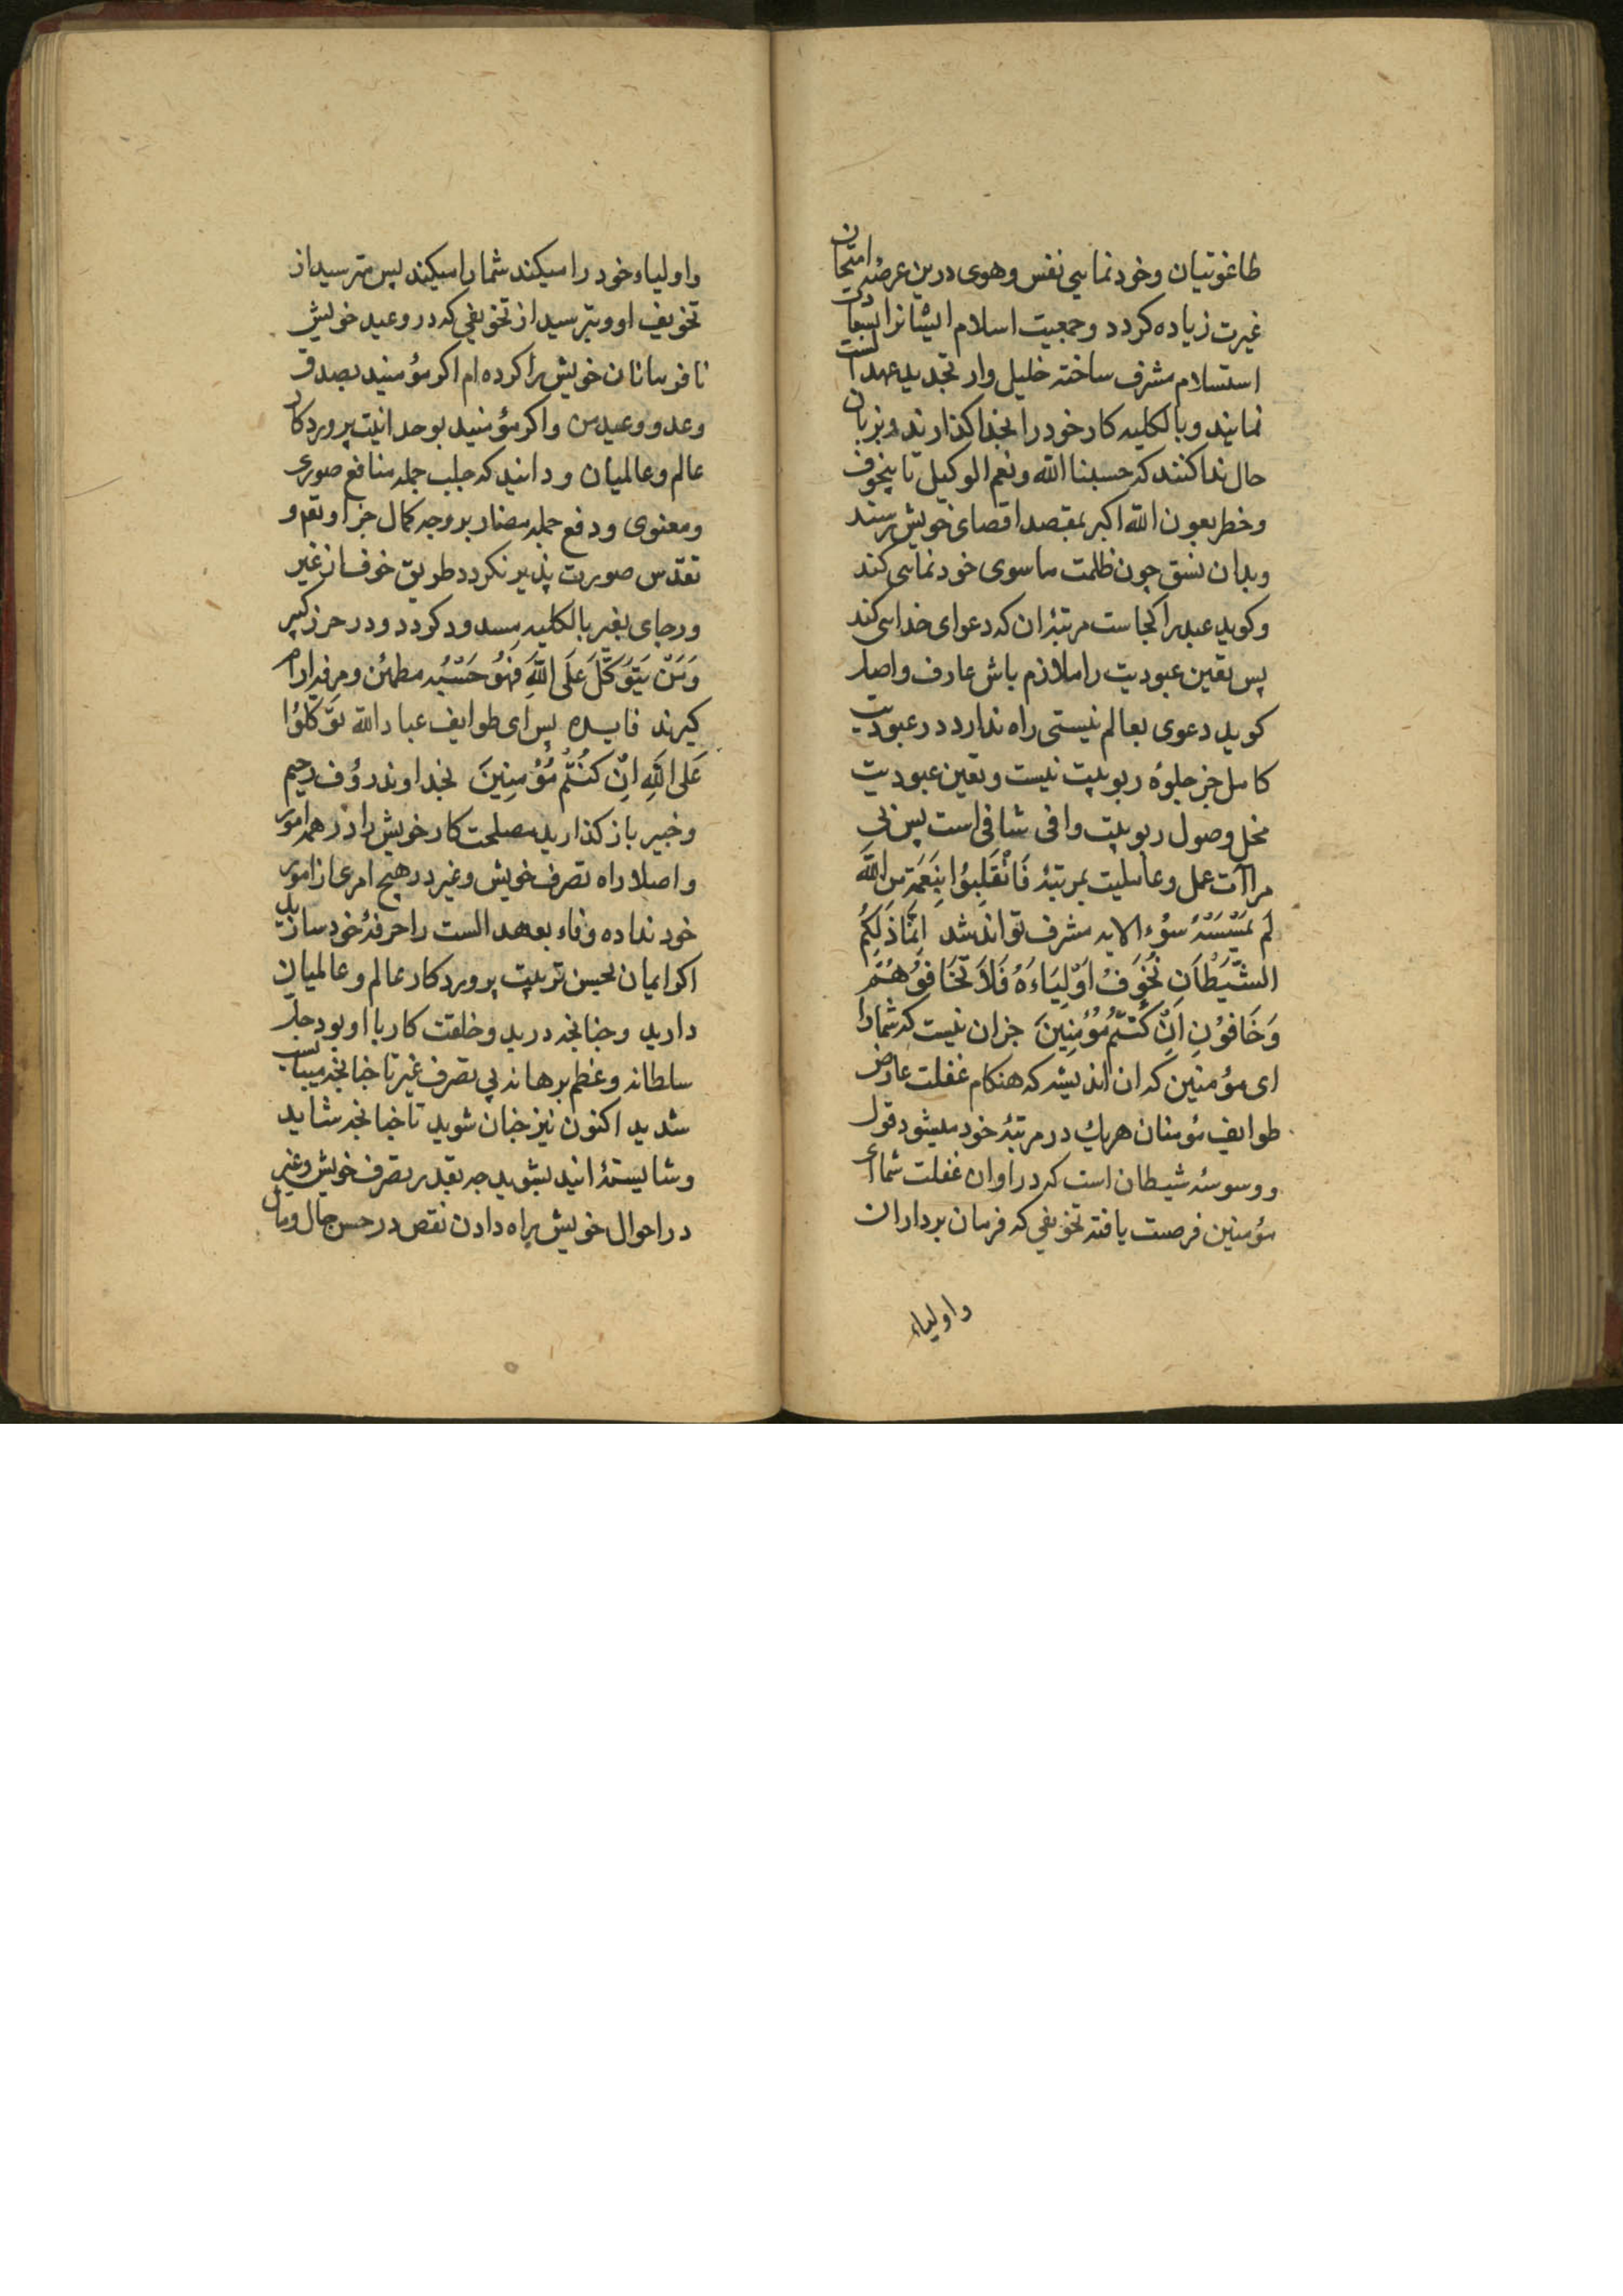 طاغوتیان وخود نمایی نفس وهوی درین عرصهٔ امتحان
غیرت زیاده کردد وجمعیت اسلام ایشانرا بسعادت
استسلام مشرف ساخته خلیل وار تجدید عهد الست
نمایند وبالکلیه کار خود را بخدا کذارند وبزبان
حال ندا کنند که حسبنا الله ونعم الوکیل تا بیخوف
وخطر بعون الله اکبر بمقصد اقصای خویش رسند
وبدان نسق چون ظلمت ماسوی خود نمایی کند
وکوید عبد را کجاست مرتبهٔ ان که دعوای خدایی کند
پس تعین عبودیت را ملازم باش عارف واصل
کوید دعوی بعالم نیستی راه ندارد در عبودیت
کامل جز جلوهٔ ربوبیت نیست وتعین عبودیت
مخل وصول ربوبیت وافی شافی است پس بی
مراآت عمل وعاملیت بمرتبهٔ فَانْقَلِبُوا بِنِعْمَةٍ مِنَ اللّٰهِ
لَم یَمْسَسْهُ سُوْء الایه مشرف تواند شد اِنَّمَا ذَلِکُمُ
الشَّیْطَانِ یُخَوِفُ اَوْلِیَاءَهُ فَلَا تَخَافُوْهُمْ
وَخَافُوْنِ اِنْ کُنْتُمْ مُؤْمِنِینَ جز ان نیست که شما را
ای مؤمنین که ان اندیشه که هنکام غفلت عارض
طوایف مؤمنان هریك در مرتبهٔ خود میشود قول
ووسوسهٔ شیطان است که در اوان غفلت شما ای
مؤمنین فرصت یافته تخویفی که فرمان برداران
واولیاء
واولیاء خود را میکند شما را میکند پس مترسید از
تخویف او وبترسید از تخویفی که در وعید خویش
نافرمانان خویش را کرده ام اکر مؤمنید بصدق
وعد ووعید من واکر مؤمنید بوحدانیت پروردکار
عالم وعالمیان ودانید که جلب جمله منافع صوری
ومعنوی ودفع جمله مضار بر وجه کمال جز او تعم و
تقدس صورت پذیر نکردد طریق خوف از غیر
ورجای بغیر بالکلیه مسدود کردد ودر حرز کبیر
وَمَنْ یَتَوَکَّلْ عَلَی اللّٰهِ فَهُوَ حَسْبُه مطمئن ومرفه ارام
کیرند فایده پس ای طوایف عباد الله تَوَکَّلُوْا
عَلَی اللّٰهِ اِنْ کُنْتُمْ مُؤْمِنِینَ بخداوند رؤف رحیم
وخبیر باز کذارید مصلحت کار خویش را در همه امور
واصلا راه تصرف خویش وغیر در هیچ امری از امور
خود نداده وفاء بعهد الست را حرفهٔ خود سازید
اکر ایمان بحسن تربیت پروردکار عالم وعالمیان
دارید وچنانچه در بدو خلقت کار با او بود جل
سلطانه وعظم برهانه بی تصرف غیر تا چنانچه میبایست
شدید اکنون نیز چنان شوید تا چنانچه شاید
وشایستهٔ انید بشوید چه بقدر تصرف خویش وغیر
در احوال خویش براه دادن نقص در حسن حال ومآل